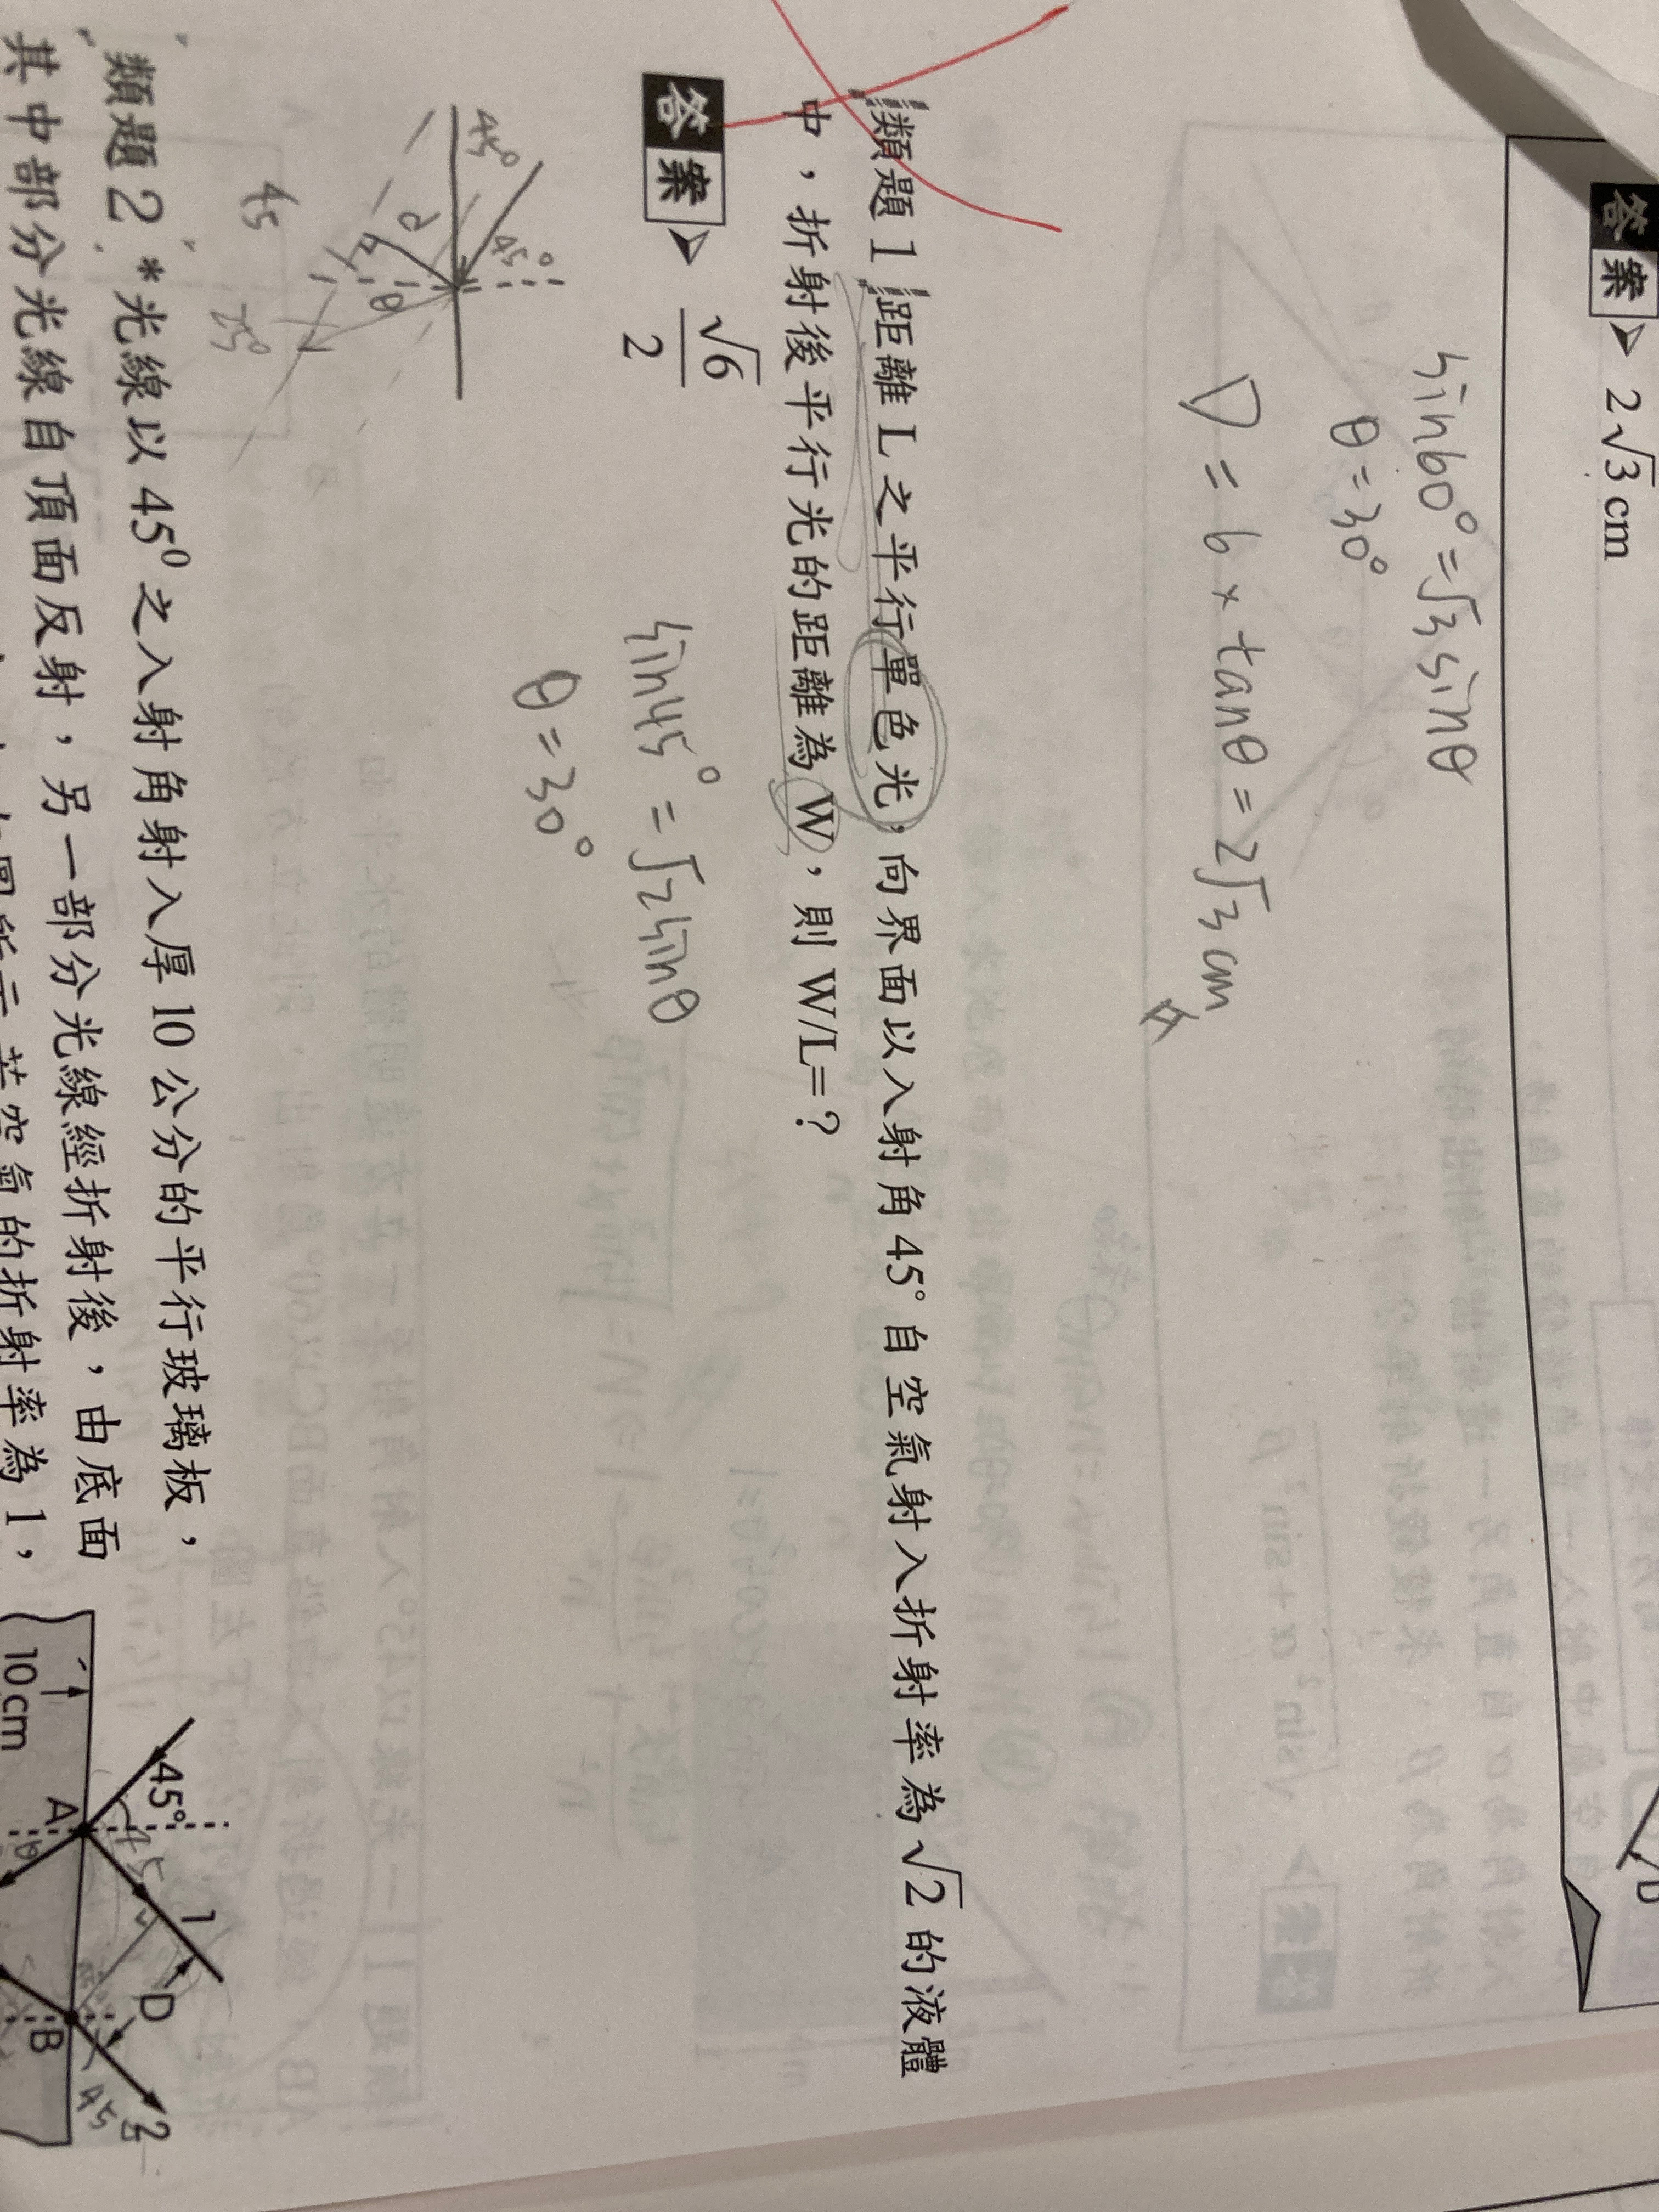 答案 2√3 cm
sin60° = √3 sinθ
θ = 30°
D = 6 × tanθ = 2√3 cm
類題1 距離 L 之平行單色光，向界面以入射角 45° 自空氣射入折射率為 √2 的液體
中，折射後平行光的距離為 W，則 W/L=？
答案 √6/2
sin45° = √2 sinθ
θ = 30°
45°
45°
d
θ
45
75°
類題2 *光線以 45⁰ 之入射角射入厚 10 公分的平行玻璃板，
其中部分光線自頂面反射，另一部分光線經折射後，由底面
空氣的折射率為 1，
45°
45
1
D
2
45
A
B
θ
10 cm